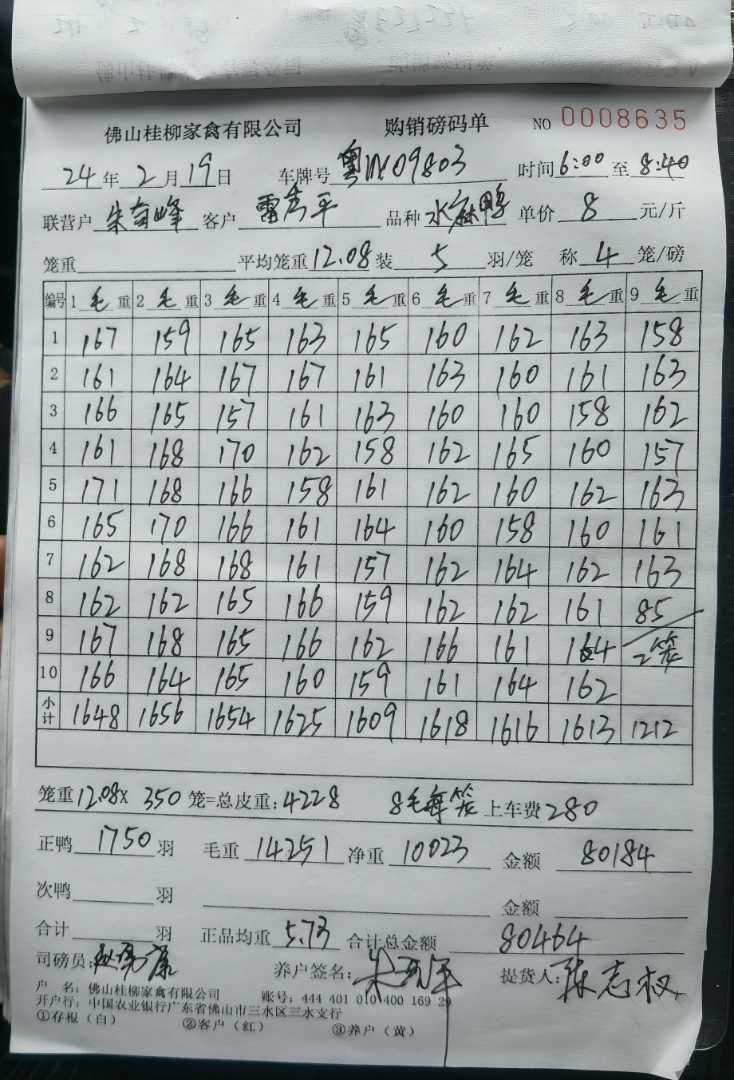 佛山桂柳家禽有限公司 购销磅码单 NO 0008635
24年2月19日 车牌号 时间6:00至8:40
联营户 客户 品种 水 鸭 单价 8 元/斤
笼重 平均笼重12.08装 5 羽/笼 称 4 笼/磅
编号 1毛重 2毛重 3毛重 4毛重 5毛重 6毛重 7毛重 8毛重 9毛重
1 167 159 165 163 165 160 162 163 158
2 161 164 167 167 161 163 160 161 163
3 166 165 157 161 163 160 160 158 162
4 161 168 170 162 158 162 165 160 157
5 171 168 166 158 161 162 160 162 163
6 165 170 166 161 164 160 158 160 161
7 162 168 168 161 157 162 164 162 163
8 162 162 165 166 159 162 162 161 85
9 167 168 165 166 162 166 161 164 2笼
10 166 164 165 160 159 161 164 162
小计 1648 1656 1654 1625 1609 1618 1616 1613 1212
笼重12.08X 350笼=总皮重:4228 8毛每笼 上车费280
正鸭 1750 羽 毛重 14251 净重 10023 金额 80184
次鸭 羽 金额
合计 羽 正品均重 5.73 合计总金额 80464
司磅员: 养户签名: 提货人:陈志权
户 名:佛山桂柳家禽有限公司 账号:444 401 010 400 169 29
开户行:中国农业银行广东省佛山市三水区三水支行
①存根(白) ②客户(红) ③养户(黄)